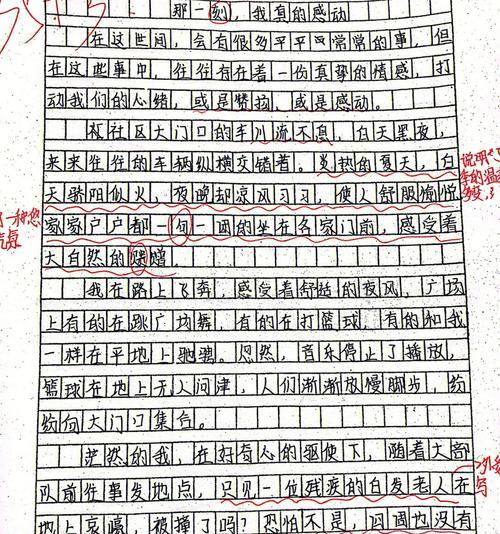 那一刻，我真的感动
在这世间，会有很多平平凡常常的事，但
在这些事中，往往存在着一份真挚的情感，打
动我们的心绪，或是赞扬、或是感动。
社区大门口的车川流不息，白天黑夜，
来来往往的车辆纵横交错着。炎热的夏天，白
天骄阳似火，夜晚却凉风习习，使人舒服愉悦
家家户户都一句一团的坐在各家门前，感受着
大自然的赐
我在路上飞奔，感受着舒适的夜风，广场
上有的在跳广场舞，有的在打篮球，有的和我
一样在平地上驰骋。忽然，音乐停止了播放，
篮球在地上无人问津，人们渐渐放慢脚步，纷
纷向大门口集合。
茫然的我，在好奇心的驱使下，随着大部
队前往事发地点，只见一位残疾的白发老人在
地上哀嚎，被撞了吗？恐怕不是，周围也没有